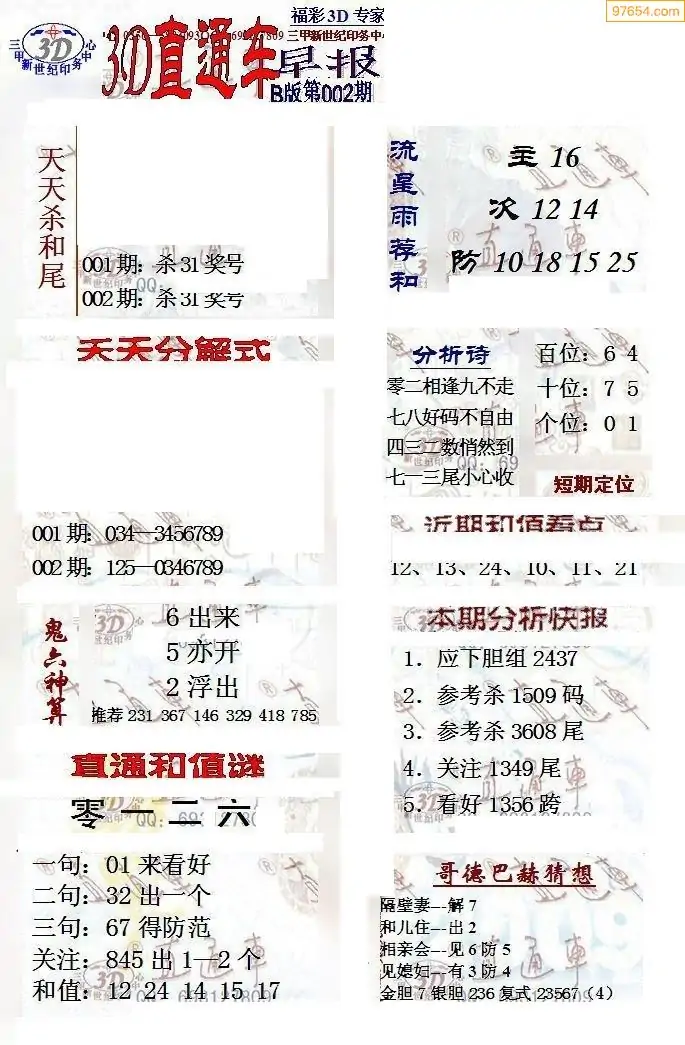 97654.com
福彩3D 专家
三甲新世纪印务中心
3D
三甲新世纪印务中心
3D直通车
早报
B版第002期
天天杀和尾
001期：杀31奖号
002期：杀31奖号
流星雨荐和
主 16
次 12 14
防 10 18 15 25
天天分解式
001期：034—3456789
002期：125—0346789
分析诗
零二相逢九不走
七八好码不自由
四三二数悄然到
七一三尾小心收
百位：6 4
十位：7 5
个位：0 1
短期定位
近期和值看点
12、13、24、10、11、21
鬼六神算
6 出来
5 亦开
2 浮出
推荐 231 367 146 329 418 785
本期分析快报
1．应下胆组 2437
2．参考杀 1509 码
3．参考杀 3608 尾
4．关注 1349 尾
5．看好 1356 跨
直通和值谜
零一二六
一句：01 来看好
二句：32 出一个
三句：67 得防范
关注：845 出 1—2 个
和值：12 24 14 15 17
哥德巴赫猜想
隔壁妻---解 7
和儿住---出 2
相亲会---见 6 防 5
见媳妇---有 3 防 4
金胆 7 银胆 236 复式 23567（4）